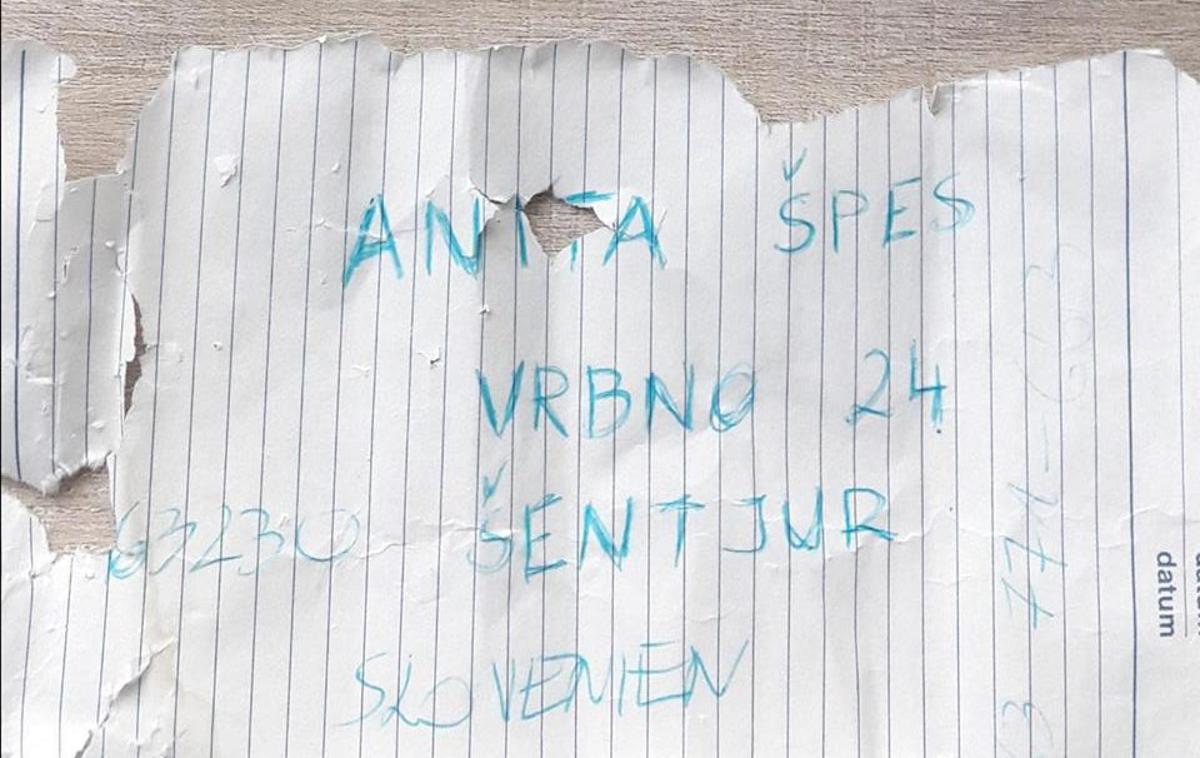 ANITA ŠPES
VRBNO 24
63230 ŠENTJUR
SLOVENIEN
datum